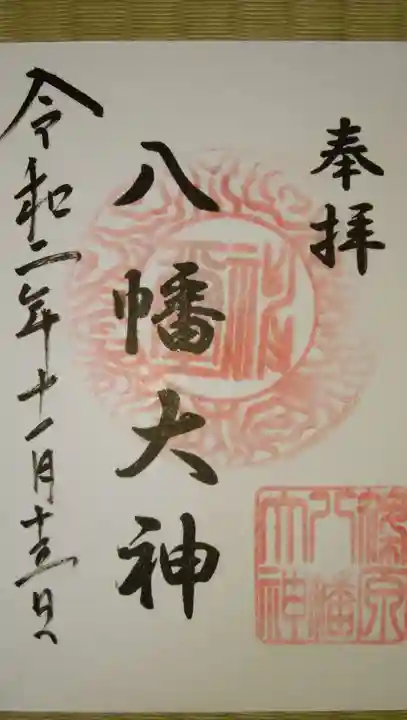 奉拝
八幡大神
令和二年十一月十三日
篠原
八幡
大神